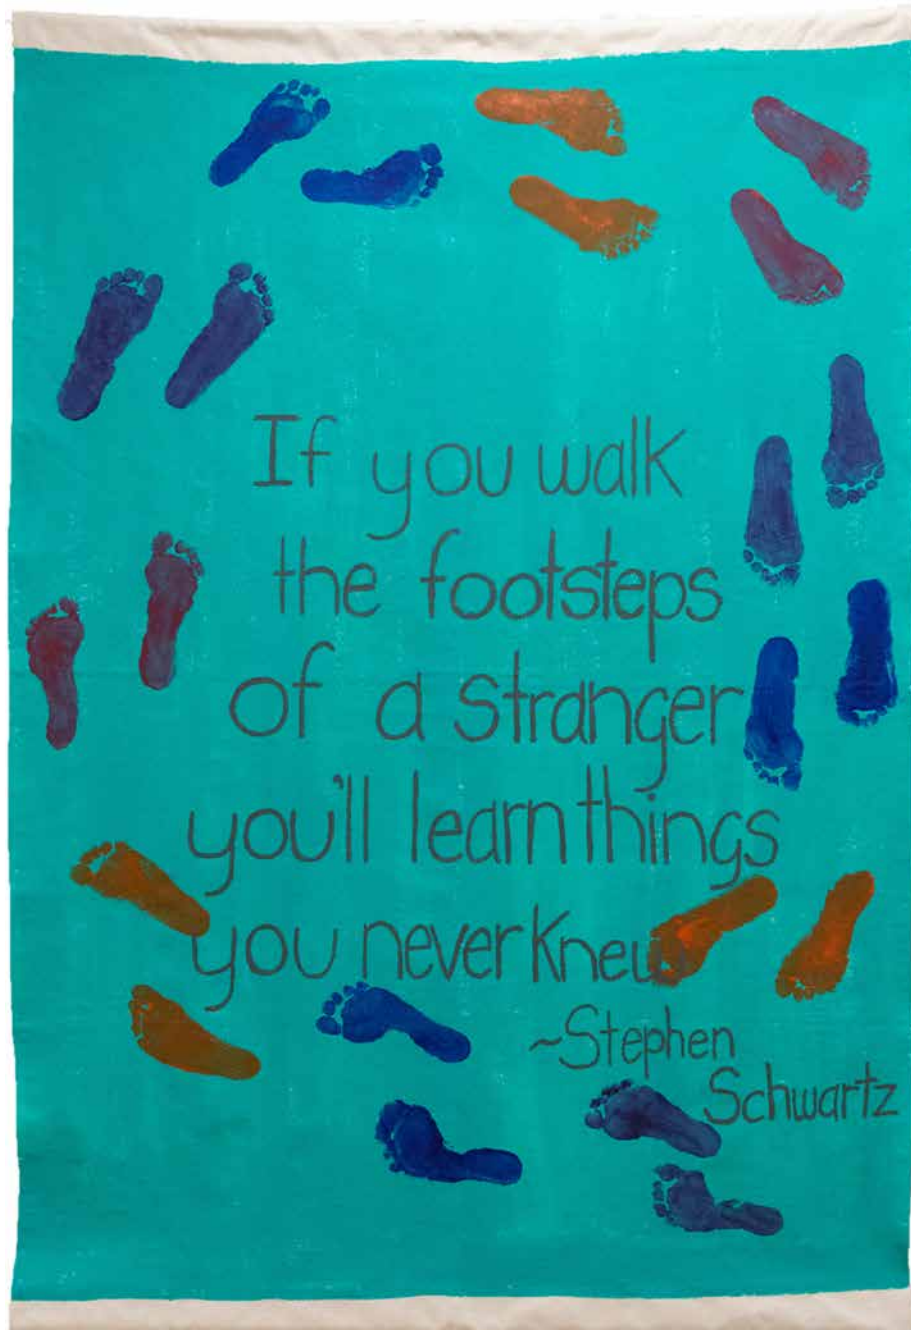 If you walk
the footsteps
of a stranger
you'll learn things
you never knew
~Stephen
Schwartz